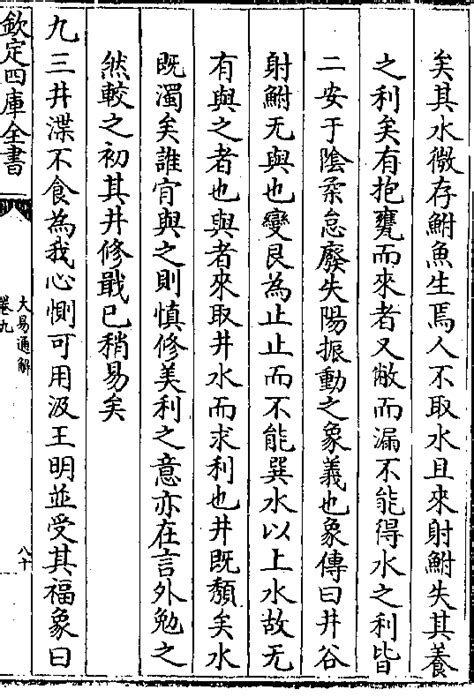 矣其水微存鮒魚生焉人不取水且來射鮒失其養
之利矣有抱甕而來者又敝而漏不能得水之利皆
二安于陰柔怠廢失陽振動之象義也象傳曰井谷
射鮒无與也變艮為止止而不能巽水以上水故无
有與之者也與者來取井水而求利也井既頽矣水
既濁矣誰肎與之則慎修美利之意亦在言外勉之
然較之初其井修戢已稍易矣
九三井渫不食為我心惻可用汲王明並受其福象曰
欽定四庫全書
大易通解
卷九
八十